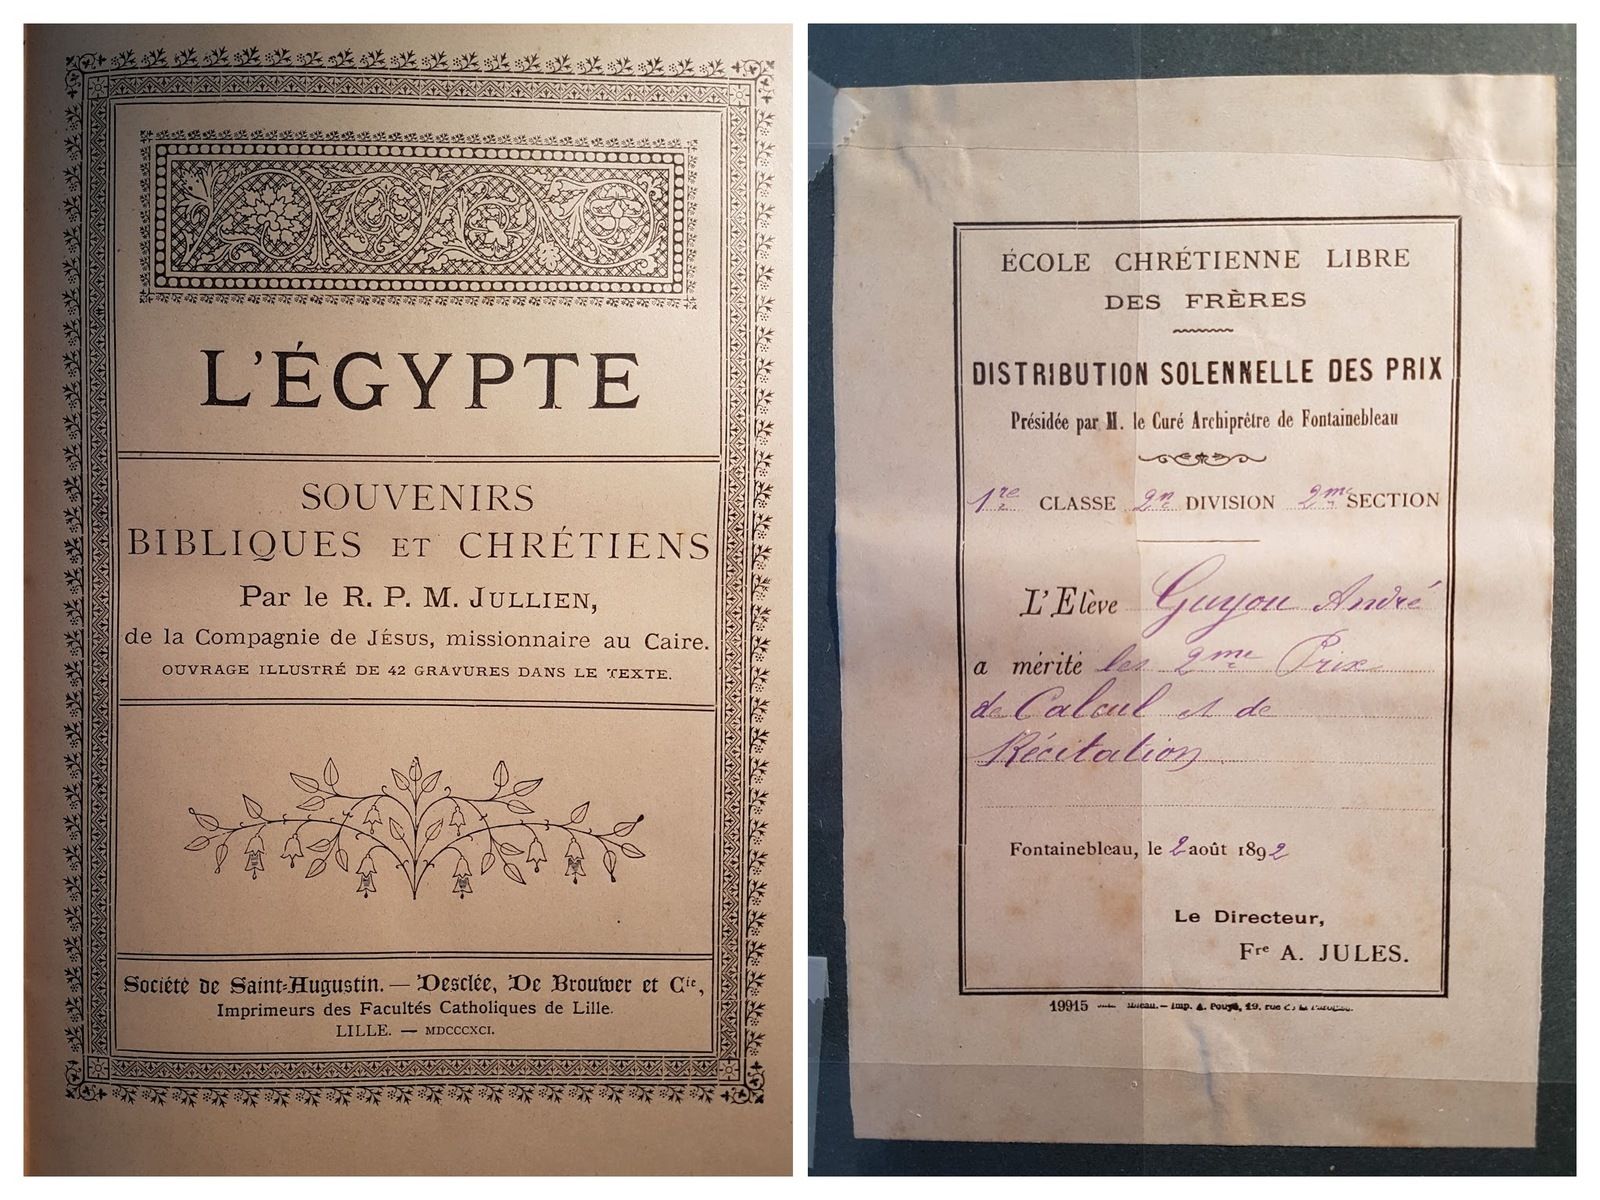 L'ÉGYPTE
SOUVENIRS
BIBLIQUES ET CHRÉTIENS
Par le R. P. M. JULLIEN,
de la Compagnie de JÉSUS, missionnaire au Caire.
OUVRAGE ILLUSTRÉ DE 42 GRAVURES DANS LE TEXTE.
Société de Saint-Augustin. — Desclée, De Brouwer et Cie,
Imprimeurs des Facultés Catholiques de Lille.
LILLE. — MDCCCXCI.
ÉCOLE CHRÉTIENNE LIBRE
DES FRÈRES
DISTRIBUTION SOLENNELLE DES PRIX
Présidée par M. le Curé Archiprêtre de Fontainebleau
1re CLASSE 2e DIVISION 2me SECTION
L'Elève Guyou André
a mérité les 2me Prix
de Calcul et de
Récitation
Fontainebleau, le 2 août 1892
Le Directeur,
Fre A. JULES.
19915 — Imp. A. Pouyé, 19, rue de la Paroisse.